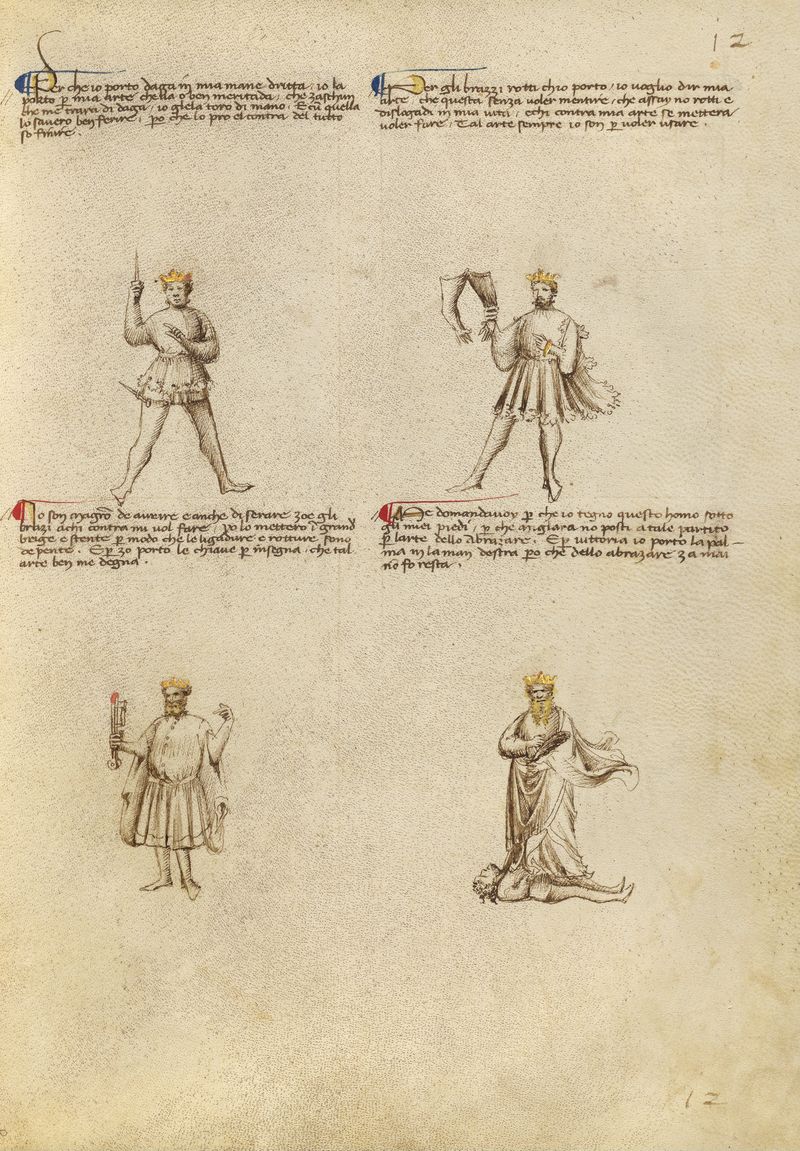 12
Per che io porto daga in mia mane dritta, io la
porto p mia arte chella o ben meritada, che zaschun
che me trara di daga, io glela toro di mano. E cu quella
lo savero ben ferire, po che lo pro el contra del tutto
so finire.
Per gli brazzi rotti chio porto, io voglio dir mia
arte, che questa senza voler mentire, che assay no rotti e
dislogadi in mia vita, e chi contra mia arte se mettera
voler fare, Tal arte sempre io son p voler usare.
Io son magro de avrire e anche di serare zoe gli
brazi achi contra mi vol fare, po lo mettero i grand
brige e stente p modo che le ligadure e rotture sono
depente. E p zo porto le chiave p insegna, che tal
arte ben me degna.
Me domandavoy p che io tegno questo homo sotto
gli miei piedi, p che migliara no posti a tale partito
p larte dello Abrazare. E p vittoria io porto la pal–
ma in la man destra po che dello abrazare za mai
no fo resta.
12